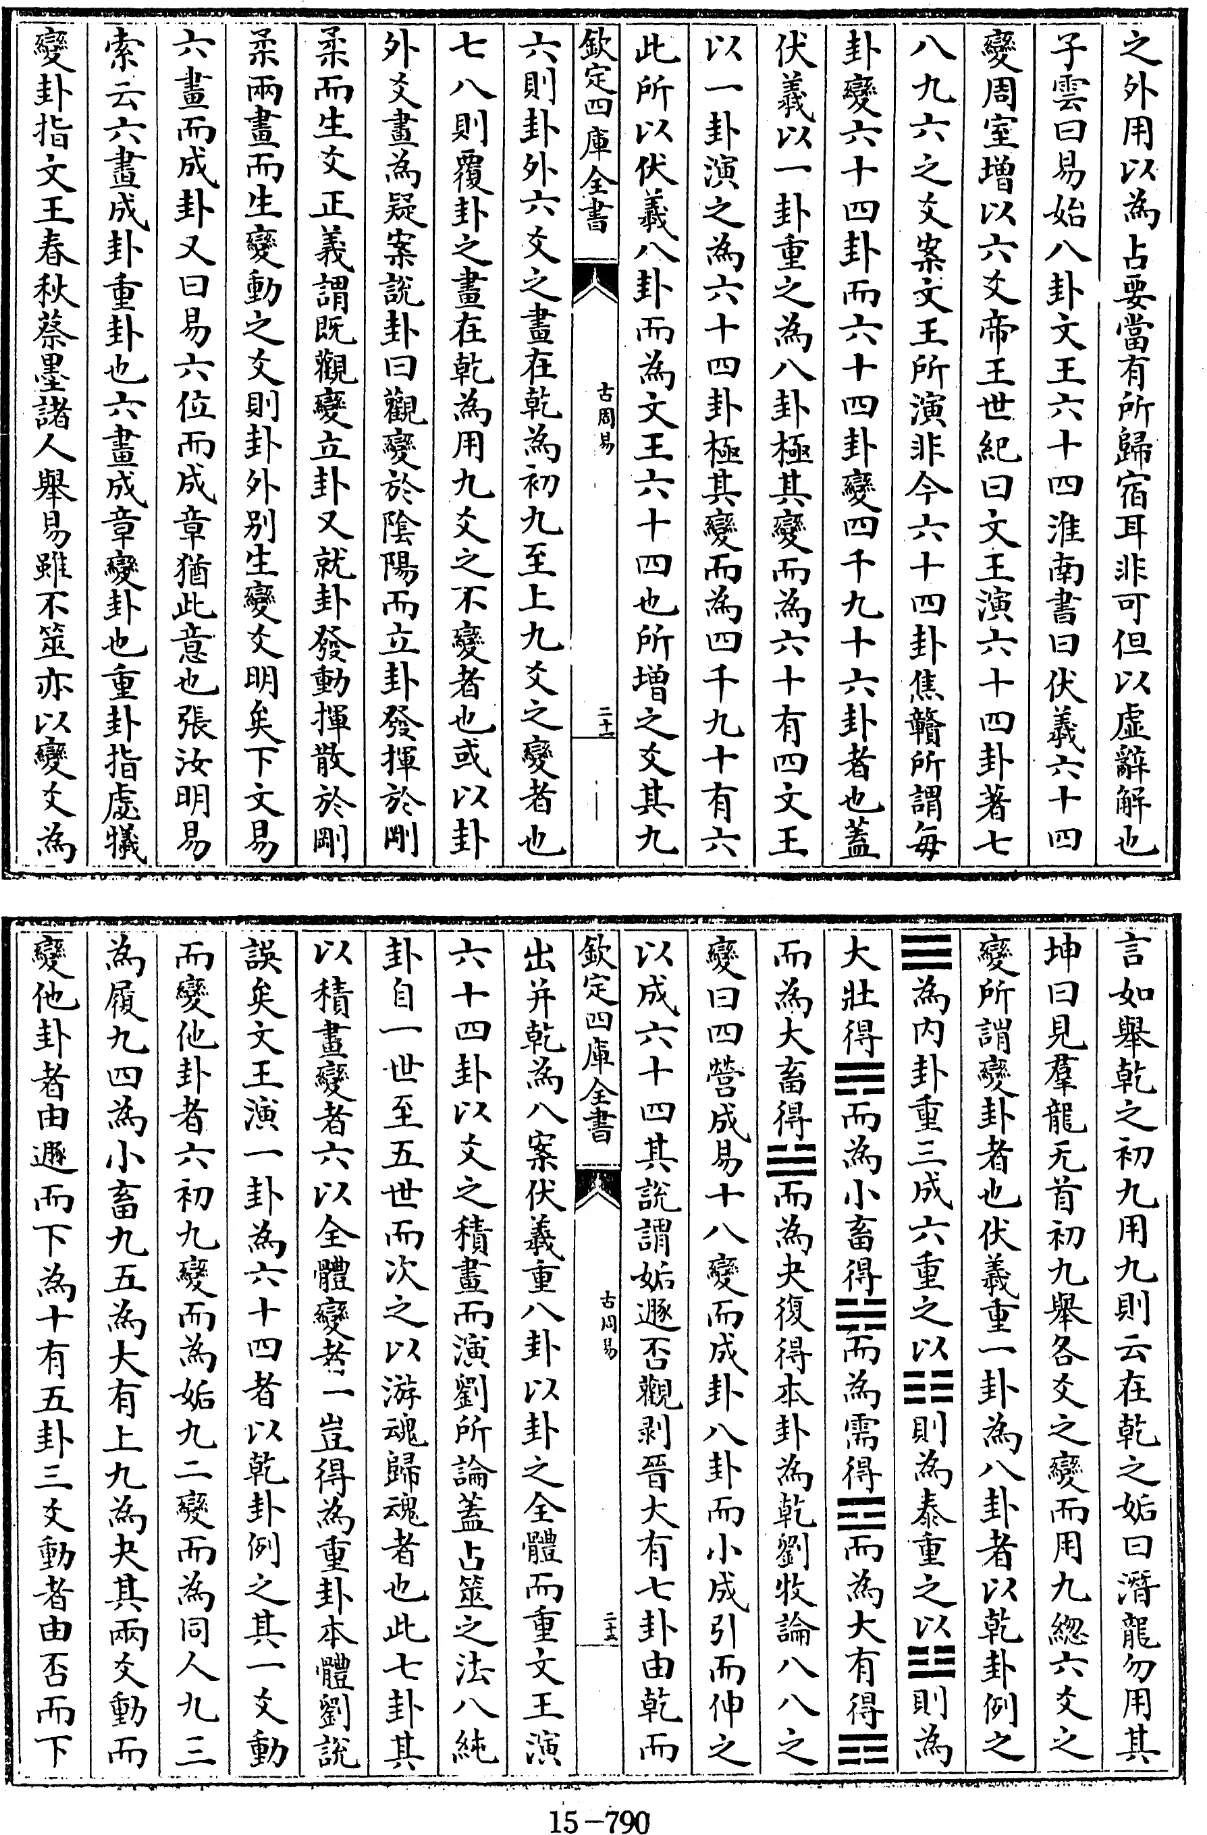 之外用以為占要當有所歸宿耳非可但以虛辭解也
子雲曰易始八卦文王六十四淮南書曰伏羲六十四
變周室增以六爻帝王世紀曰文王演六十四卦著七
八九六之爻案文王所演非今六十四卦焦贛所謂每
卦變六十四卦而六十四卦變四千九十六卦者也蓋
伏羲以一卦重之為八卦極其變而為六十有四文王
以一卦演之為六十四卦極其變而為四千九十有六
此所以伏羲八卦而為文王六十四也所增之爻其九
欽定四庫全書
古周易
二十一
六則卦外六爻之畫在乾為初九至上九爻之變者也
七八則覆卦之畫在乾為用九爻之不變者也或以卦
外爻畫為疑案說卦曰觀變於陰陽而立卦發揮於剛
柔而生爻正義謂既觀變立卦又就卦發動揮散於剛
柔兩畫而生變動之爻則卦外別生變爻明矣下文易
六畫而成卦又曰易六位而成章猶此意也張汝明易
索云六畫成卦重卦也六畫成章變卦也重卦指虙犧
變卦指文王春秋蔡墨諸人舉易雖不筮亦以變爻為
言如舉乾之初九用九則云在乾之姤曰潛龍勿用其
坤曰見羣龍无首初九舉各爻之變而用九總六爻之
變所謂變卦者也伏羲重一卦為八卦者以乾卦例之
☰為內卦重三成六重之以☷則為泰重之以☳則為
大壯得☴而為小畜得☵而為需得☲而為大有得☶
而為大畜得☱而為夬復得本卦為乾劉牧論八八之
變曰四營成易十八變而成卦八卦而小成引而伸之
以成六十四其說謂姤遯否觀剥晉大有七卦由乾而
欽定四庫全書
古周易
二十二
出并乾為八案伏羲重八卦以卦之全體而重文王演
六十四卦以爻之積畫而演劉所論蓋占筮之法八純
卦自一世至五世而次之以游魂歸魂者也此七卦其
以積畫變者六以全體變者一豈得為重卦本體劉說
誤矣文王演一卦為六十四者以乾卦例之其一爻動
而變他卦者六初九變而為姤九二變而為同人九三
為履九四為小畜九五為大有上九為夬其兩爻動而
變他卦者由遯而下為十有五卦三爻動者由否而下
15-790